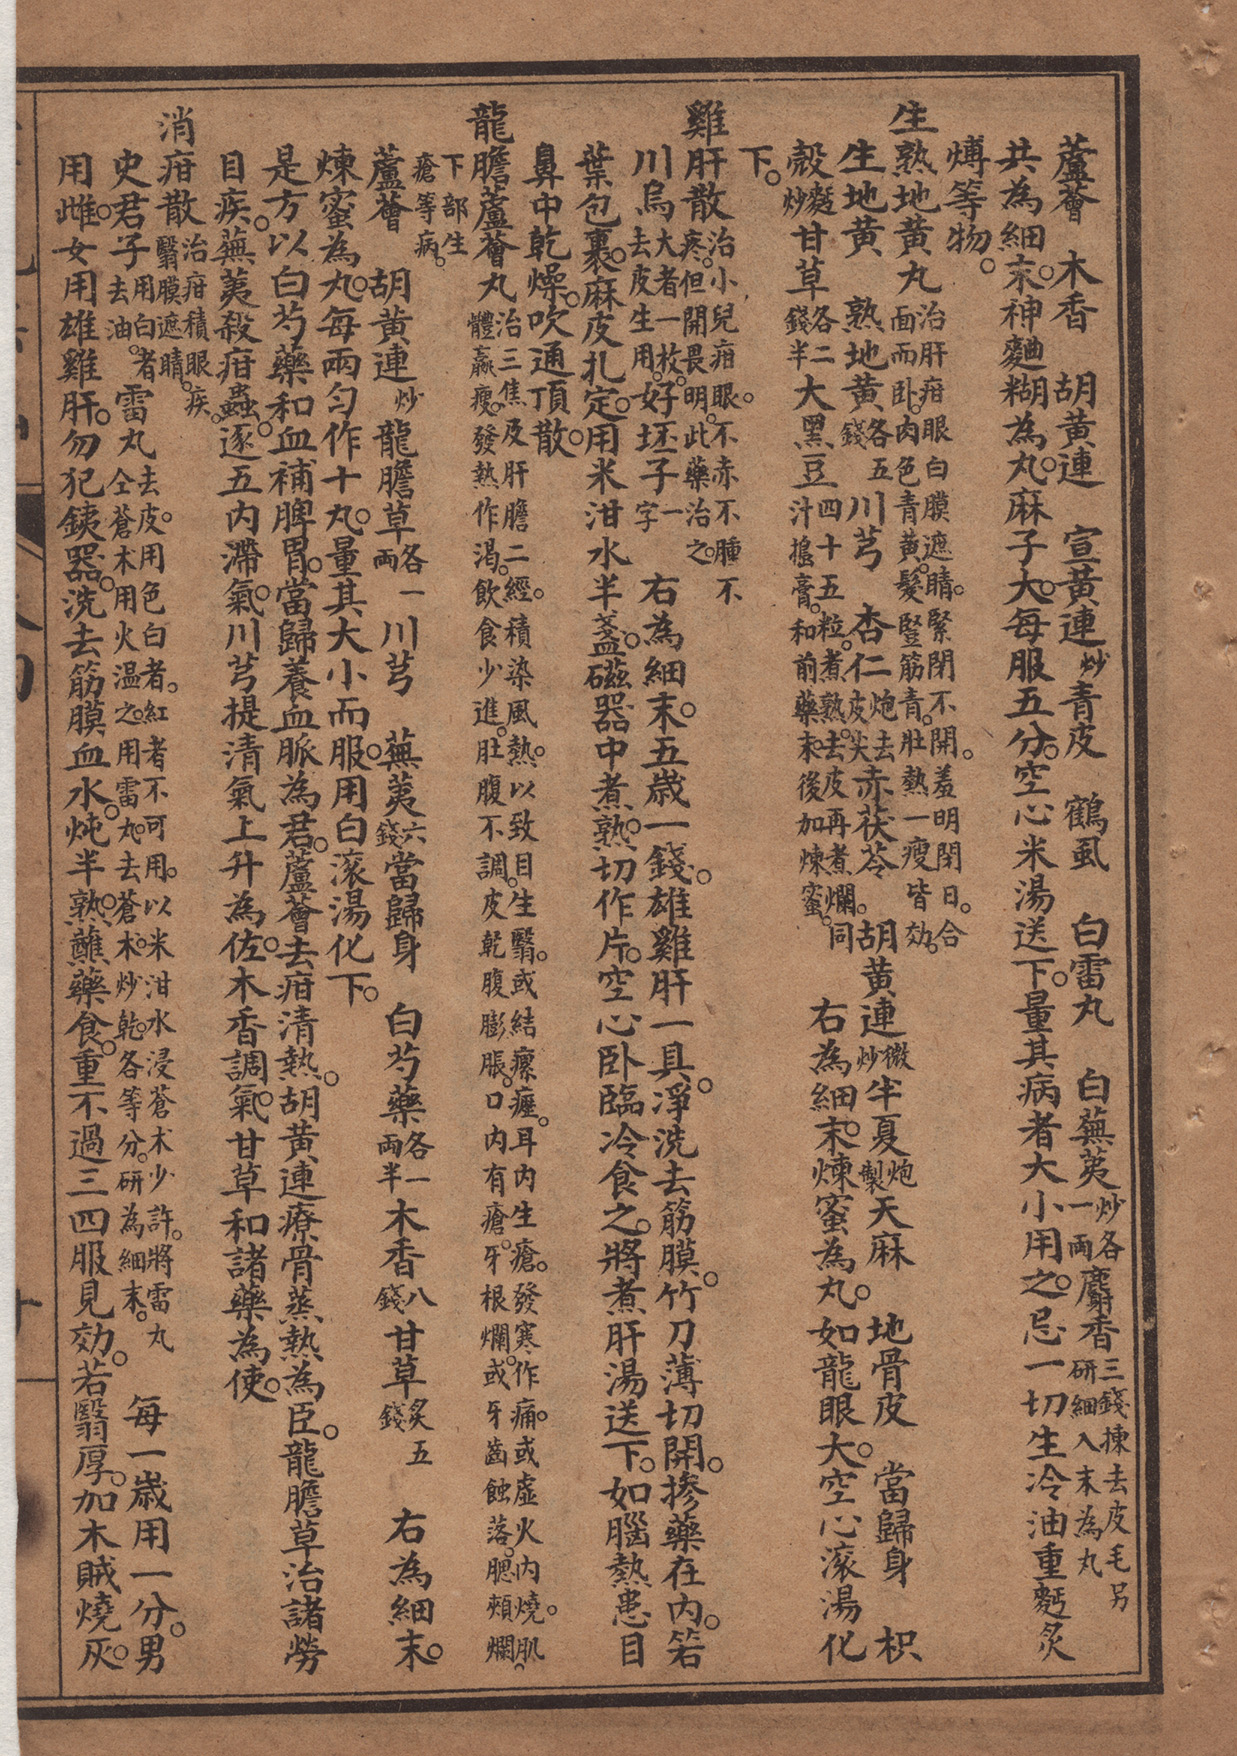 蘆薈　木香　胡黃連　宣黃連炒青皮　鶴虱　白雷丸　白蕪荑炒各一兩麝香三錢揀去皮毛另研細入末為丸
共為細末。神麯糊為丸。麻子大。每服五分。空心米湯送下。量其病者大小用之。忌一切生冷油重麪炙
煿等物。
生熟地黃丸治肝疳眼白膜遮睛。緊閉不開。羞明閉日。合面而卧。肉色青黃。髮豎筋青。壯熱一瘦皆効。
生地黃　熟地黃各五錢　川芎　杏仁炮去皮尖赤茯苓　胡黃連微炒半夏炮製天麻　地骨皮　當歸身　枳
殼麩炒甘草各二錢半大黑豆四十五粒煮熟。去皮再煮爛。同汁搗膏。和前藥末後加煉蜜。　右為細末。煉蜜為丸。如龍眼大。空心滚湯化
下。
雞肝散治小兒疳眼。不赤不腫不疼。但開畏明。此藥治之。
川烏大者一枚。去皮生用。好坯子一字　右為細末。五歲一錢。雄雞肝一具。淨洗去筋膜。竹刀薄切開。摻藥在內。箬
葉包裹。麻皮扎定。用米泔水半盞。磁器中煮熟。切作片。空心卧臨冷食之。將煮肝湯送下。如腦熱患目
鼻中乾燥。吹通頂散。
龍膽蘆薈丸治三焦及肝膽二經。積染風熱。以致目生翳。或結瘰癧。耳內生瘡。發寒作痛。或虛火內燒。肌體羸瘦。發熱作渴。飲食少進。肚腹不調。皮乾腹膨脹。口內有瘡。牙根爛。或牙齒蝕落。腮頰爛
下部生瘡等病。
蘆薈　胡黃連炒　龍膽草各一兩　川芎　蕪荑六錢當歸身　白芍藥各一兩半木香八錢甘草炙五錢　右為細末。
煉蜜為丸。每兩匀作十丸。量其大小而服。用白滚湯化下。
是方以白芍藥和血補脾胃。當歸養血脈為君。蘆薈去疳清熱。胡黃連療骨蒸熱為臣。龍膽草治諸勞
目疾。蕪荑殺疳蟲。逐五內滯氣。川芎提清氣上升為佐。木香調氣。甘草和諸藥為使。
消疳散治疳積眼疾。翳膜遮睛。
史君子用白者去油。雷丸去皮。用色白者。紅者不可用。以米泔水浸蒼朮少許。將雷丸仝蒼朮用火温之。用雷丸。去蒼朮。炒乾。各等分。研為細末。　每一歲用一分。男
用雌。女用雄雞肝。勿犯銕器。洗去筋膜血水。炖半熟。蘸藥食。重不過三四服見効。若翳厚。加木賊燒灰。